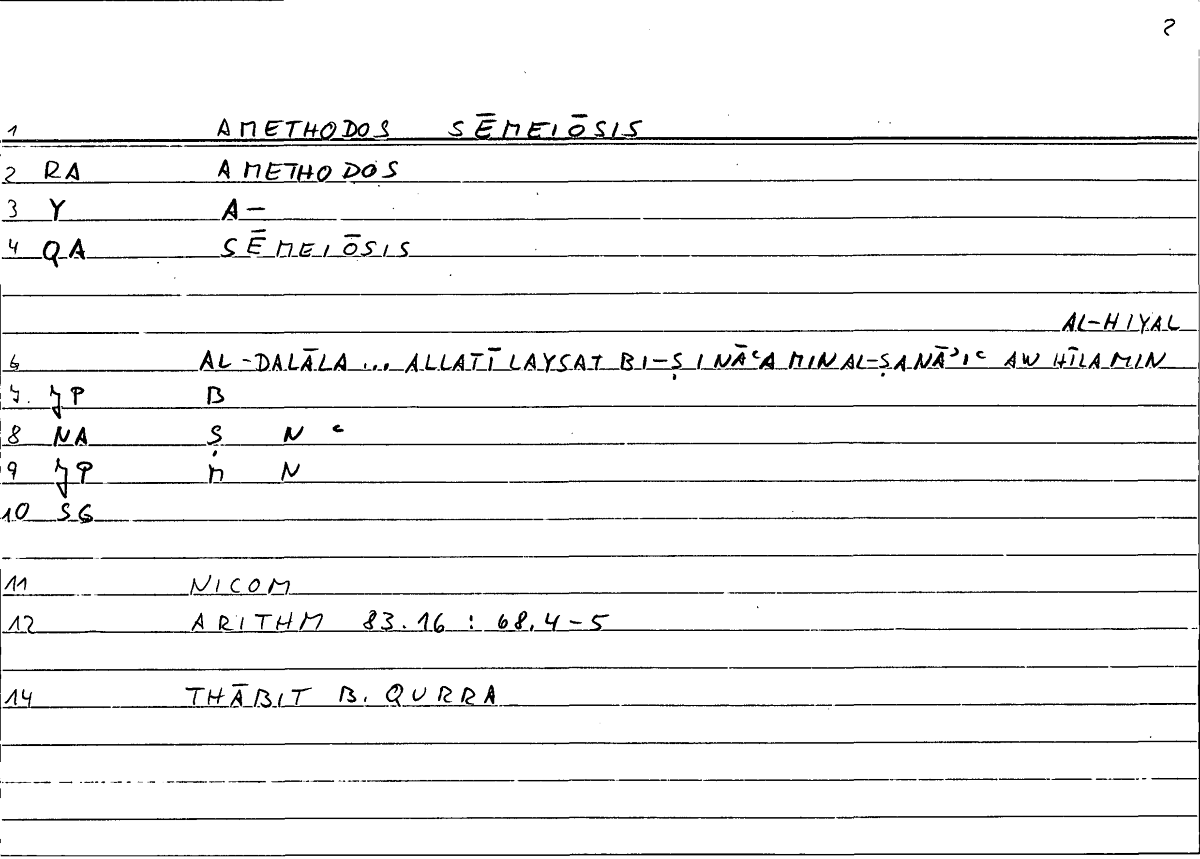 2
1 AMETHODOS SĒMEIŌSIS
2 RA AMETHODOS
3 Y A–
4 QA SĒMEIŌSIS
AL-HIYAL
6 AL-DALĀLA ... ALLATĪ LAYSAT BI-ṢINĀʿA MIN AL-ṢANĀʾIʿ AW HĪLA MIN
7. JP B
8 NA Ṣ N ʿ
9 JP M N
10 SG
11 NICOM
12 ARITHM 83.16 : 68.4-5
14 THĀBIT B. QURRA